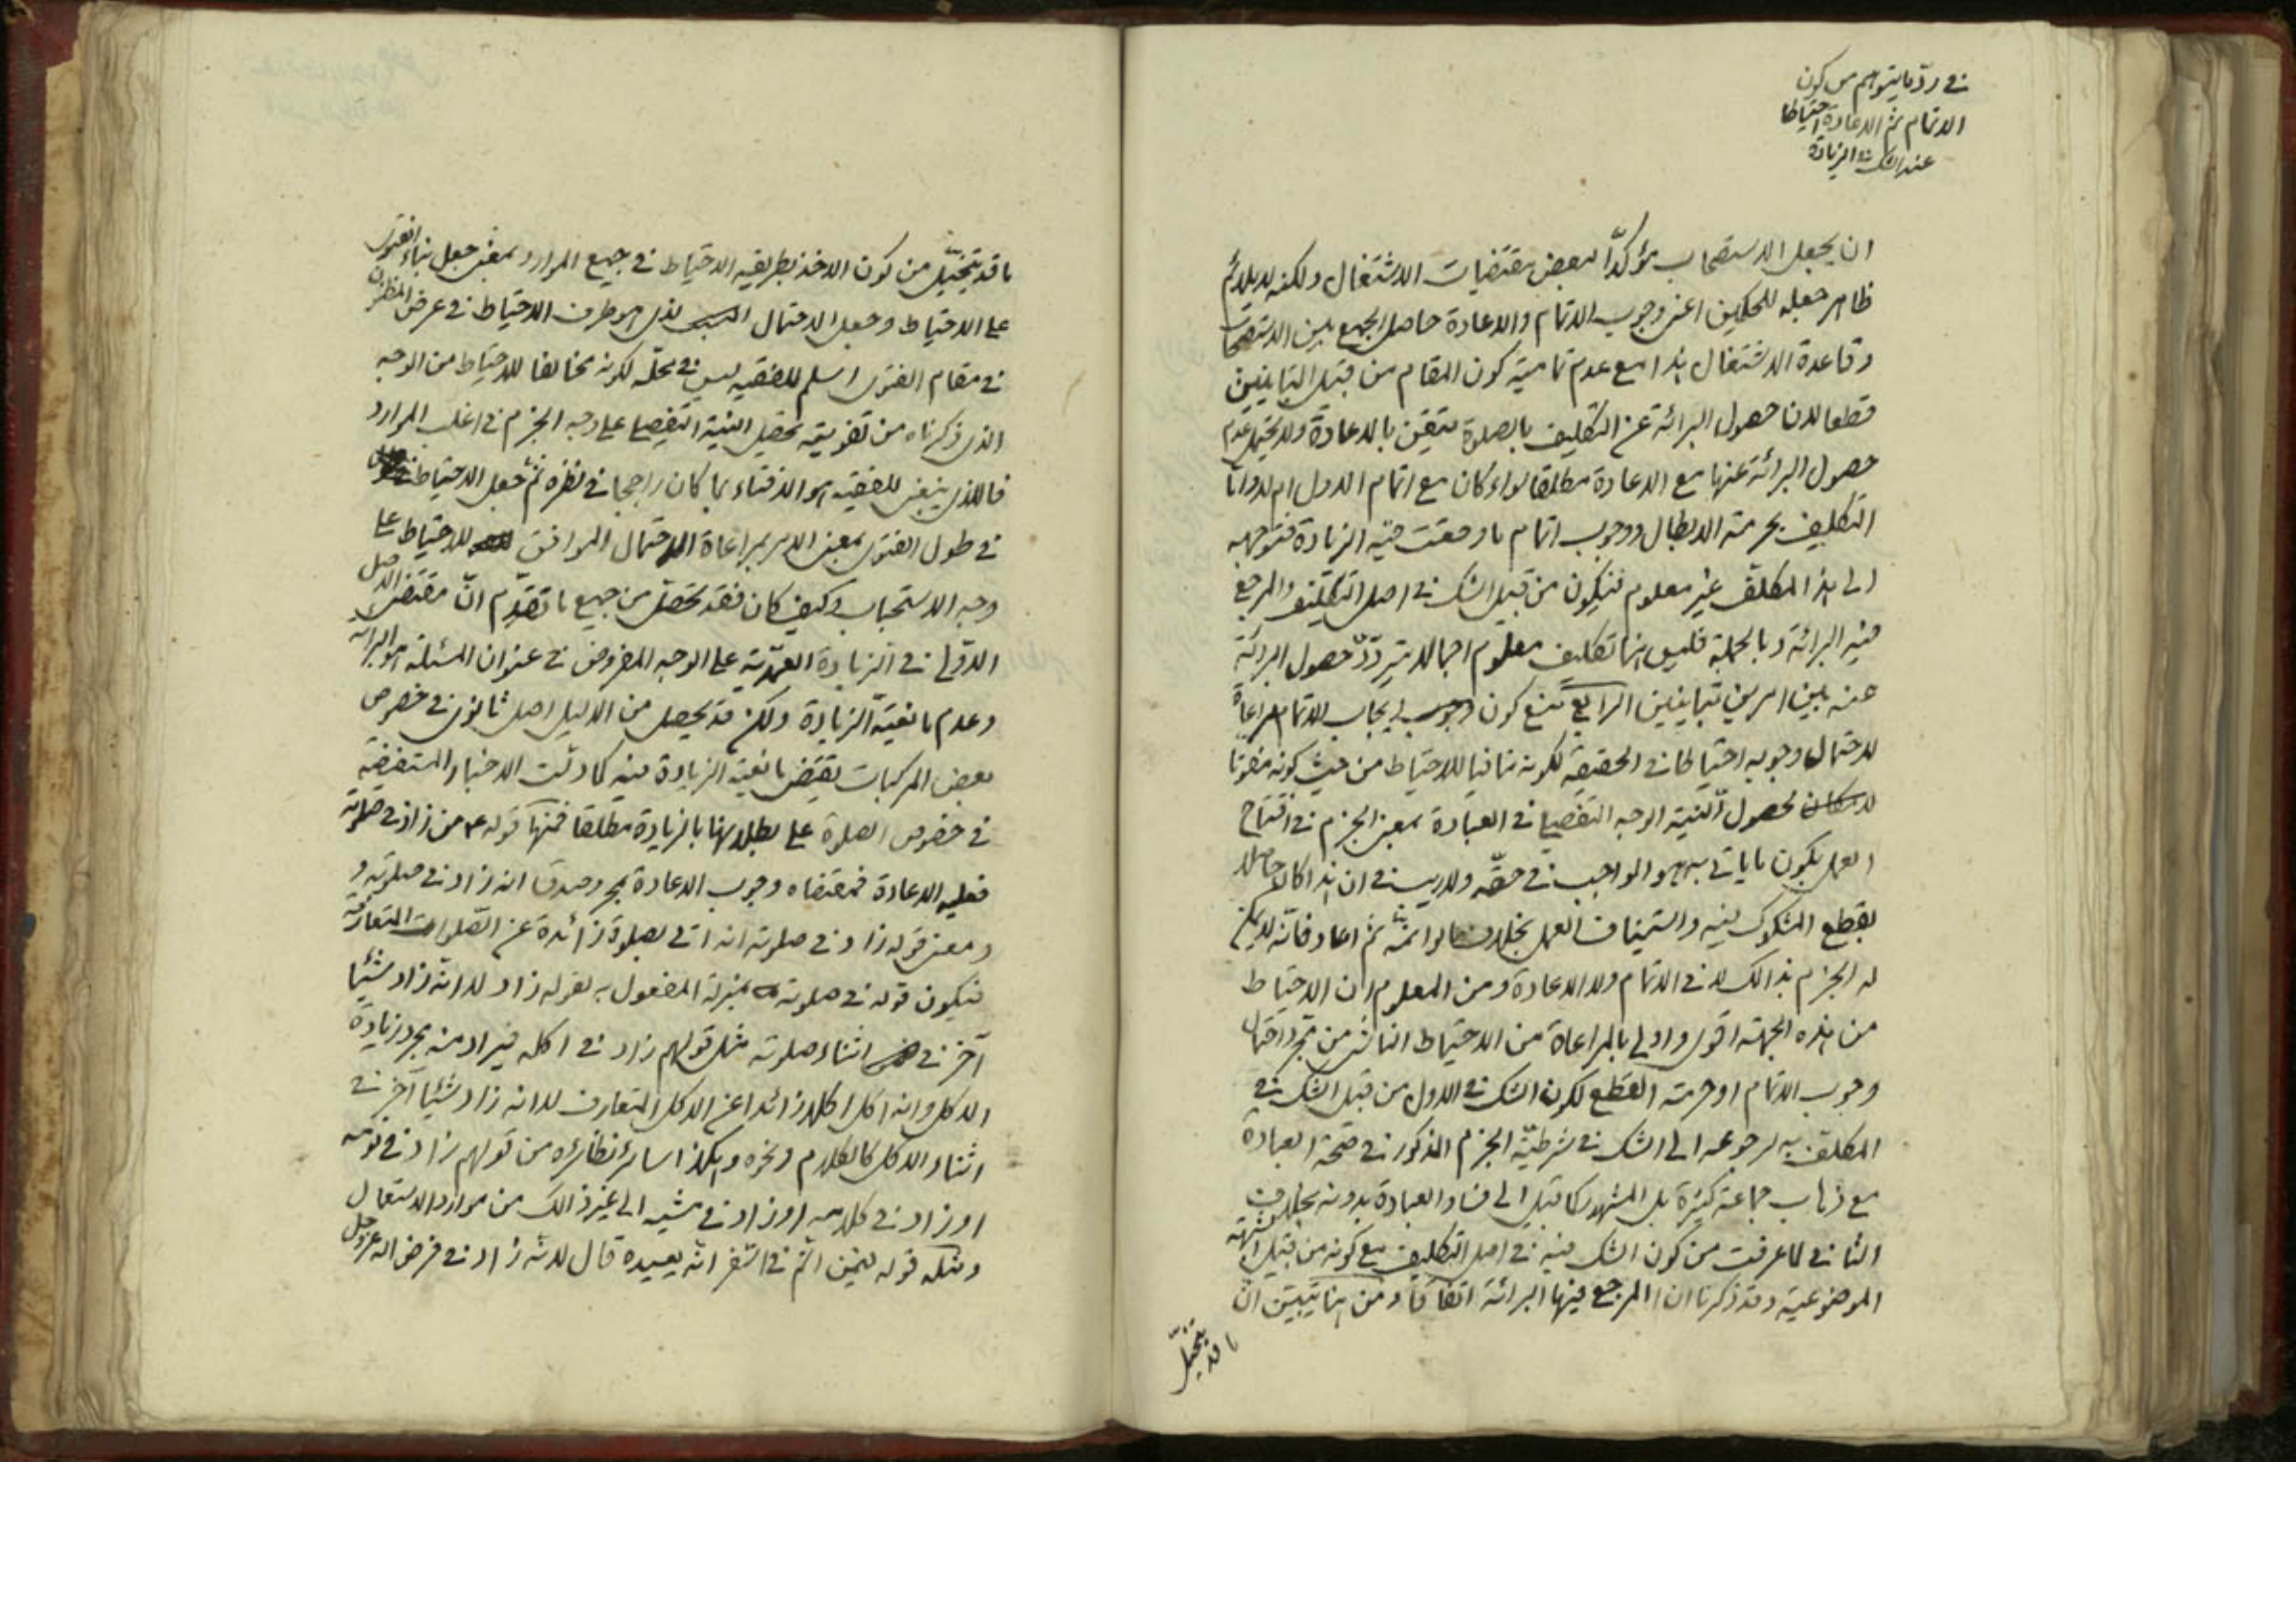 في ردّ ما يتوهم من كون
الاتمام ثم الاعادة احتياطا
عند الشك في الزيادة
ان يجعل الاستصحاب مؤكدّا لبعض مقتضيات الاشتغال ولكنه لا يلائم
ظاهر جعله للحكمين اعنى وجوب الاتمام والاعادة حاصل الجمع بين الاستصحاب
وقاعدة الاشتغال هذا مع عدم تماميّة كون المقام من قبيل المتباينين
قطعا لان حصول البرائة عن التكليف بالصلوة متيقن بالاعادة ولا يحتمل عدم
حصول البرائة عنها مع الاعادة مطلقا سواء كان مع اتمام الاول ام لا وامّا
التكليف بحرمة الابطال ووجوب اتمام ما وقعت فيه الزيادة فتوجهه
الى هذا المكلّف غير معلوم فيكون من قبيل الشك في اصل التكليف والمرجع
فيه البرائة وبالجملة فليس هنا تكليف معلوم اجمالا يتردّد حصول البرائة
عنه بين امرين متباينين الرابع منع كون ايجاب الاتمام مراعاة
لاحتمال وجوبه احتياطا في الحقيقة لكونه منافيا للاحتياط من حيث كونه مفوتا
لحصول النيّة الوجه التفصيلى في العبادة بمعنى الجزم في افتتاح
العمل بكون ما ياتى به هو الواجب في حقّه ولا ريب في ان هذا كان حاصلا
بقطع المشكوك فيه واستيناف العمل بخلاف ما لو اتمّه ثم اعاد فانّه لا يمكن
له الجزم بذالك لا في الاتمام ولا الاعادة ومن المعلوم ان الاحتياط
من هذه الجهة اقوى واولى بالمراعاة من الاحتياط الناشى من مجرد احتمال
وجوب الاتمام او حرمة القطع لكون الشك في الاول من قبيل الشك في
المكلف به لرجوعه الى الشك في شرطيّة الجزم المذكور في صحّة العبادة
مع ذهاب جماعة كثيرة بل المشهور كما قيل الى فساد العبادة بدونه بخلاف
الثانى لما عرفت من كون الشك فيه في اصل التكليف مع كونه من قبيل الشبهة
الموضوعيّة وقد ذكرنا ان المرجع فيها البرائة اتفاقا ومن هنا يتبيّن انّ
ما قد يتخيّل
ما قد يتخيّل من كون الاخذ بطريقة الاحتياط في جميع الموارد بمعنى جعل بناء الفتوى
على الاحتياط وجعل الاحتمال الذى هو طرف الاحتياط في عرض المظنون
في مقام الفتوى اسلم للفقيه ليس في محلّه لكونه مخالفا للاحتياط من الوجه
الذى ذكرناه من تفويته تحصيل النيّة التفصيلى على وجه الجزم في اغلب الموارد
فالذى ينبغى للفقيه هو الافتاء بما كان راجحا في نظره ثم جعل الاحتياط
في طول الفتوى بمعنى الامر بمراعاة الاحتمال الموافق للاحتياط على
وجه الاستحباب وكيف كان فقد تحصّل من جميع ما تقدّم انّ مقتضى الاصل
الاوّلى في الزيادة العمديّة على الوجه المفروض في عنوان المسئلة هو البرائة
وعدم مانعيّة الزيادة ولكن قد يحصل من الدليل اصل ثانوى في خصوص
بعض المركبات يقتضى مانعيّة الزيادة فيه كما دلّت الاخبار المستفيضة
في خصوص الصلوة على بطلانها بالزيادة مطلقا فمنها قوله ع من زاد في صلوته
فعليه الاعادة فمقتضاه وجوب الاعادة بمجرد صدق انه زاد في صلوته و
ومعنى قوله زاد في صلوته انه اتى بصلوة زائدة عن الصّلوات المتعارفة
فيكون قوله في صلوته بمنزلة المفعول به لقوله زاد لا انّه زاد شيئا
آخر في اثناء صلوته مثل قولهم زاد في اكله فيراد منه مجرد زيادة
الاكل وانه اكل اكلا زائدا عن الاكل المتعارف لا انه زاد شيئا آخر في
اثناء الاكل كالكلام ونحوه وهكذا سائر نظائره من قولهم زاد في نومه
او زاد في كلامه او زاد في مشيه الى غير ذالك من موارد الاستعمال
ومثله قوله فيمن اتمّ في السّفر انّه يعيده قال لانّه زاد في فرض الله عزوجل